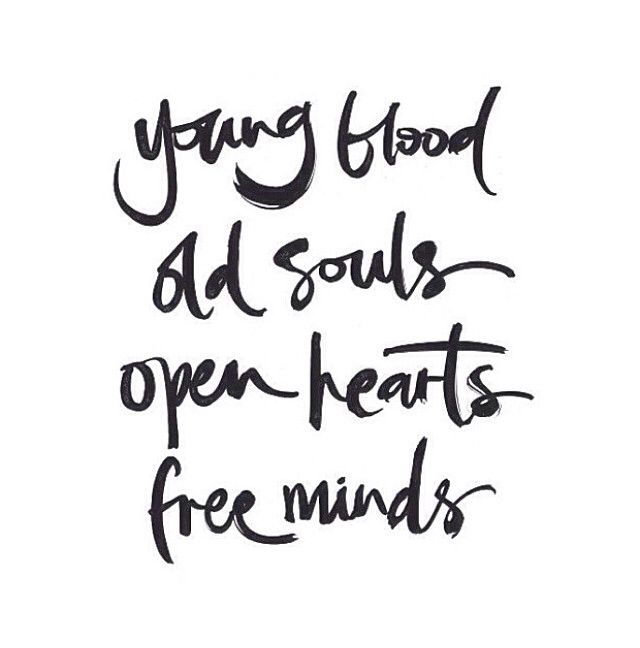 young blood
old souls
open hearts
free minds